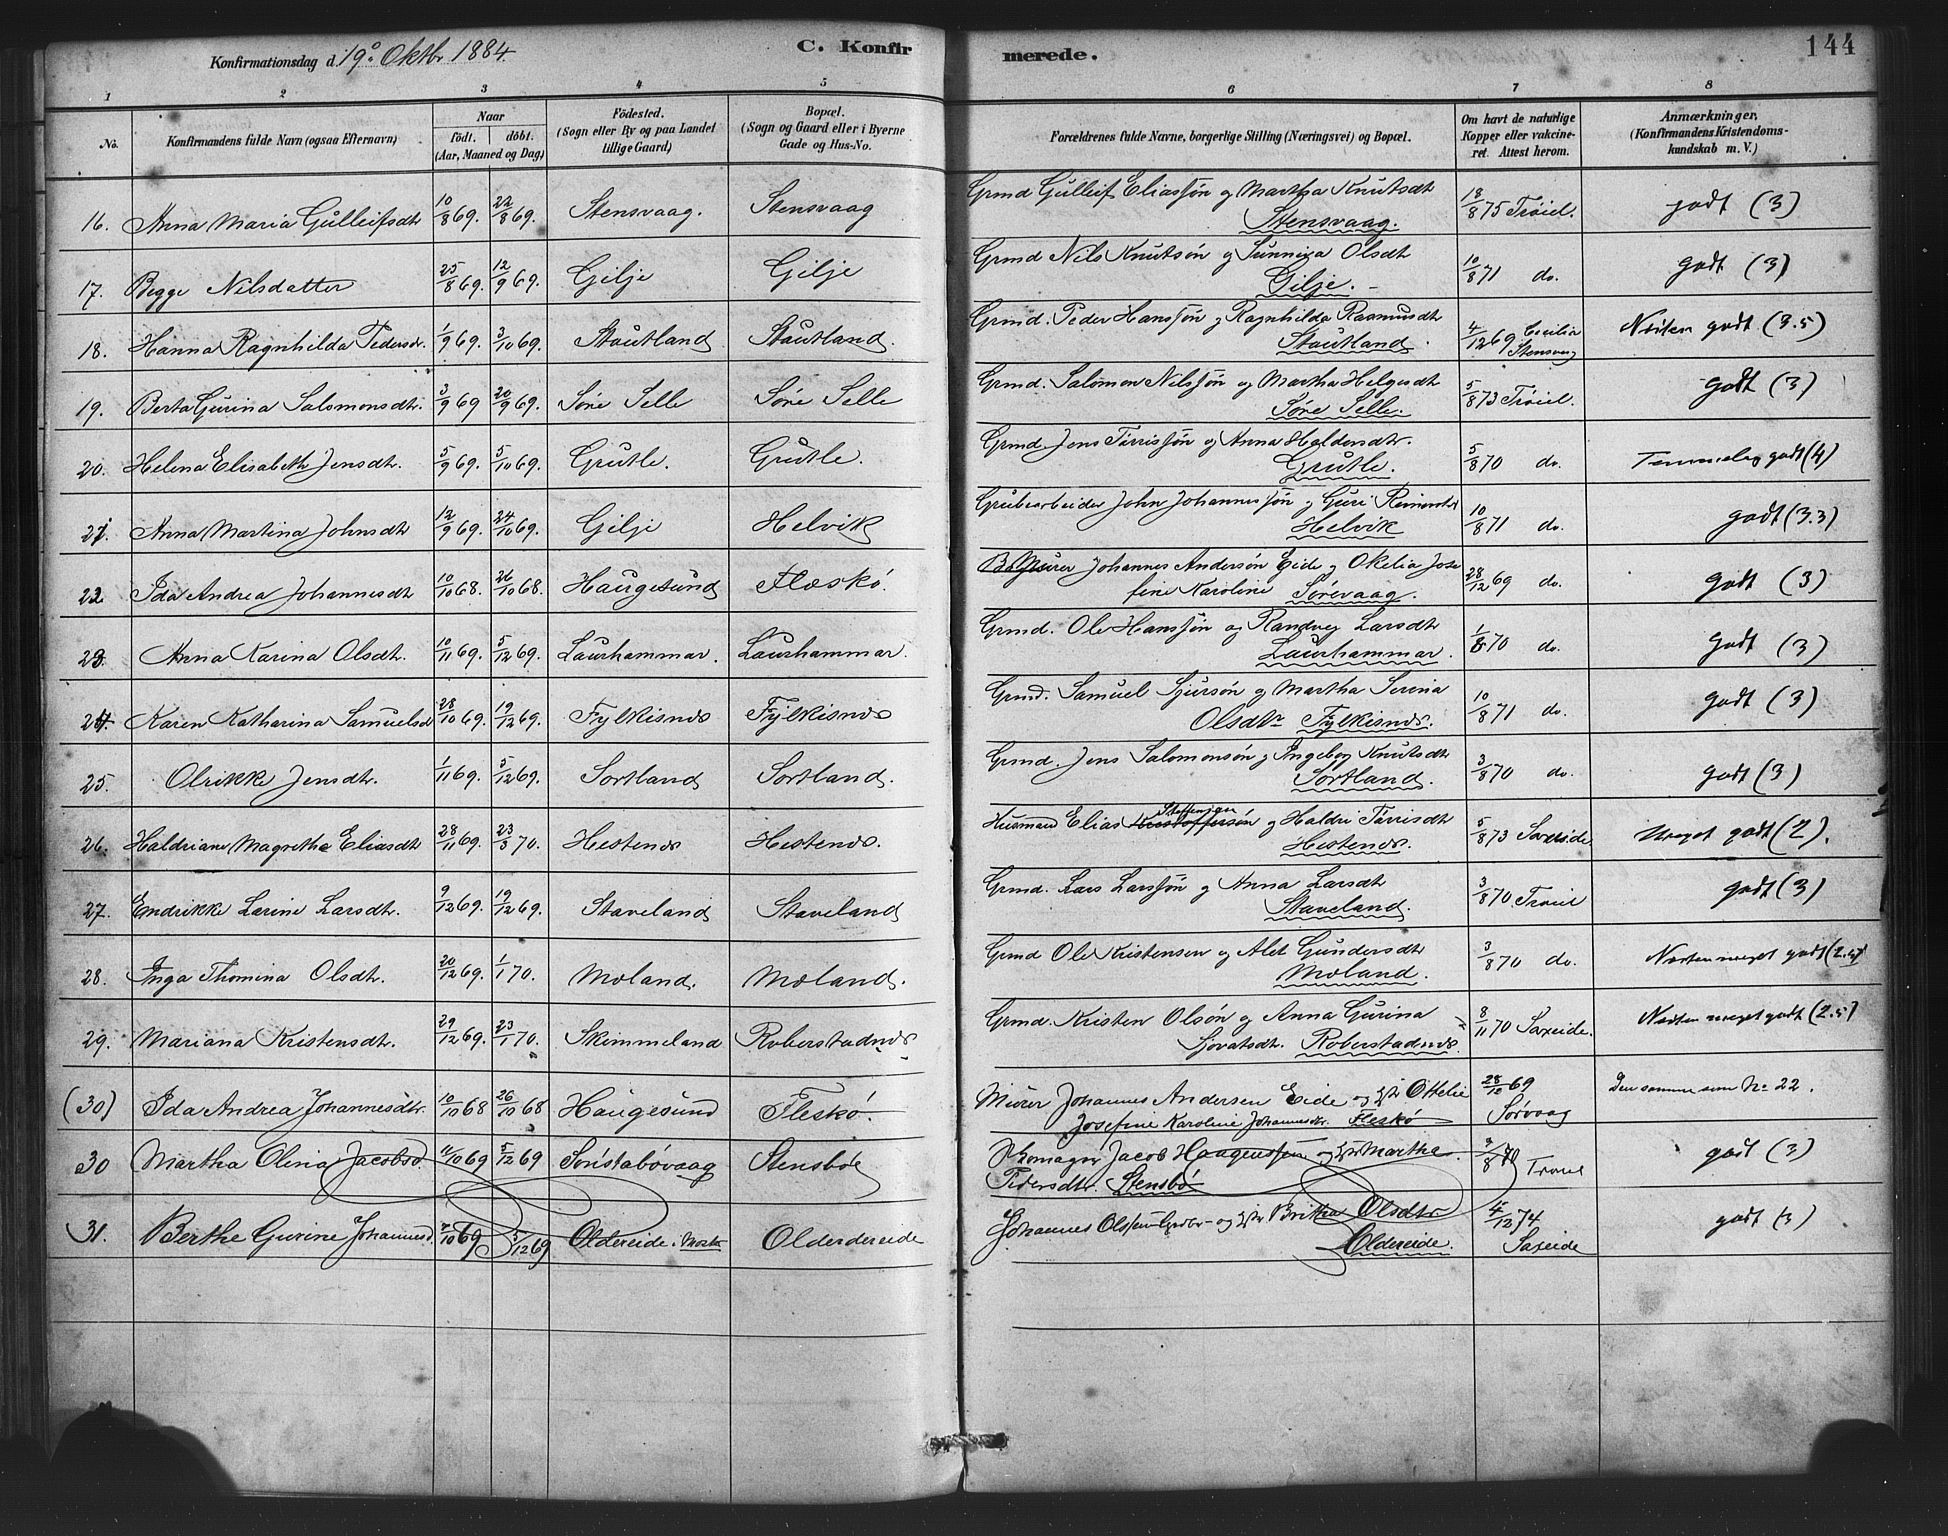 Konfirmationsdag d. 19de Oktbr 1884.
C. Konfirmerede.
144
1 2 3 4 5 6 7 8
No. | Konfirmandens fulde Navn (ogsaa Efternavn) | Naar født. døbt. (Aar, Maaned og Dag) | Fødested. (Sogn eller By og paa Landet tillige Gaard) | Bopæl. (Sogn og Gaard eller i Byerne Gade og Hus-No. | Forældrenes fulde Navne, borgerlige Stilling (Næringsvei) og Bopæl. | Om havt de naturlige Kopper eller vakcineret. Attest herom. | Anmærkninger, (Konfirmandens Kristendomskundskab m. V.)
16. Anna Maria Gulleifsdt 10/8 69. 22/8 69. Stensvaag. Stensvaag Grmd Gulleif Eliassøn og Martha Knutsdt Stensvaag. 18/8 75 Trøiel. godt (3)
17. Begge Nilsdatter 25/8 69. 12/9 69. Gilje Gilje Grmd Nils Knutsøn og Sunniva Olsdt Gilje. 10/8 71 do. godt (3)
18. Hanna Ragnhilda Pedersdr. 1/9 69. 3/10 69. Stautland Stautland. Grmd. Peder Hanssøn og Ragnhilda Rasmusdt Stautland. 4/12 69 Cecilia Stensvag Næsten godt (3.5)
19. Berta Gurina Salomonsdtr. 3/9 69 20/9 69. Søre Selle Søre Selle Grmd. Salomon Nilssøn og Martha Helgesdt Søre Selle. 5/8 73 Trøiel. godt (3)
20. Helena Elisabeth Jensdtr. 5/9 69. 5/10 69. Grutle. Grutle. Grmd. Jens Tørrissøn og Anna Haldorsdtr. Grutle. 5/8 70 do. Temmelig godt (4)
21. Anna Martina Johnsdt 12/9 69. 24/10 69. Gilje Helvik Grubearbeider John Johannessøn og Guri Helvik 10/8 71 do. godt (3.3)
22. Ida Andrea Johannesdt 10/10 68. 26/10 68. Haugesund Fleskø. Murer Johannes Andersøn Eide og Okelia Josefine Karoline Sørevaag. 28/12 69 do. godt (3)
23. Anna Karina Olsdt. 10/11 69. 5/12 69. Laurhammar. Laurhammar. Grmd. Ole Hanssøn og Randveg Larsdt Laurhammar. 1/8 70 do. godt (3)
24. Karen Katharina Samuelsd 28/10 69. 19/12 69. Fylkisnes Fylkisnes Grmd. Samuel Sjursøn og Martha Serina Olsdtr Fylkisnes. 10/8 71 do. godt (3)
25. Olrikke Jensdtr. 1/11 69. 5/12 69. Sortland Sortland. Grmd. Jens Salomonsøn og Ingeborg Knutsdt Sortland. 3/8 70 do. godt (3)
26. Haldriane Magrethe Eliasdt 28/11 69. 23/3 70. Hestenes Hestenes. Husmand Elias Kristoffersøn Steffensen og Haldri Tørrisdt Hestenes. 5/8 73 Saxeide Meget godt (2).
27. Endrikke Larine Larsdtr. 9/12 69. 19/12 69. Staveland Staveland Grmd. Lars Larssøn og Anna Larsdt Staveland. 3/8 70 Trøiel godt (3)
28. Inga Thomina Olsdtr. 20/12 69. 1/1 70. Moland. Moland. Grmd Ole Kristensen og Alet Gundersdt Moland. 3/8 70 do. Næsten meget godt (2.4)
29. Mariana Kristensdtr. 29/12 69. 23/1 70. Skimmeland Roberstadnes Grmd. Kristen Olsøn og Anna Gurina Sjovatsdt. Roberstadnes. 8/11 70 Saxeide. Næsten meget godt (2.5)
(30) Ida Andrea Johannesdtr. 10/10 68 26/10 68 Haugesund Fleskø. Murer Johannes Andersen Eide og Hr Ottelie Josefine Karoline Johannesdtr. Fleskø 28/12 69 Sørvaag Den samme som No 22.
30 Martha Olina Jacobsd. 11/10 69 5/12 69 Sønstabøvaag Stensbøe Skomager Jacob Haagenssen og Hr Marthe Pedersdtr. Stensbø 3/8 70 Trøiel godt (3)
31. Berthe Gurine Johannesd. 7/10 69 5/12 69 Oldereide. Oldereide Johannes Olssen Grdbr. og Hr Britha Olsdtr Oldereide. 4/12 74 Saxeide godt (3)